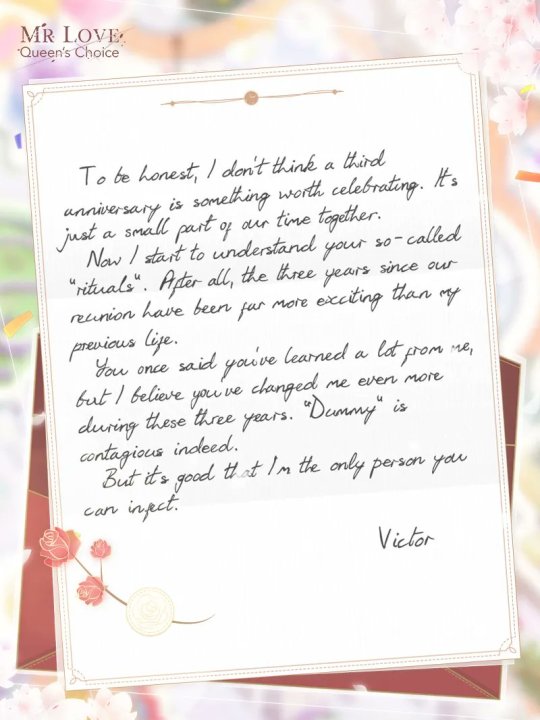 MR LOVE
Queen's Choice
To be honest, I don't think a third
anniversary is something worth celebrating. It's
just a small part of our time together.
Now I start to understand your so-called
"rituals". After all, the three years since our
reunion have been far more exciting than my
previous life.
You once said you've learned a lot from me,
but I believe you've changed me even more
during these three years. "Dummy" is
contagious indeed.
But it's good that I'm the only person you
can infect.
Victor